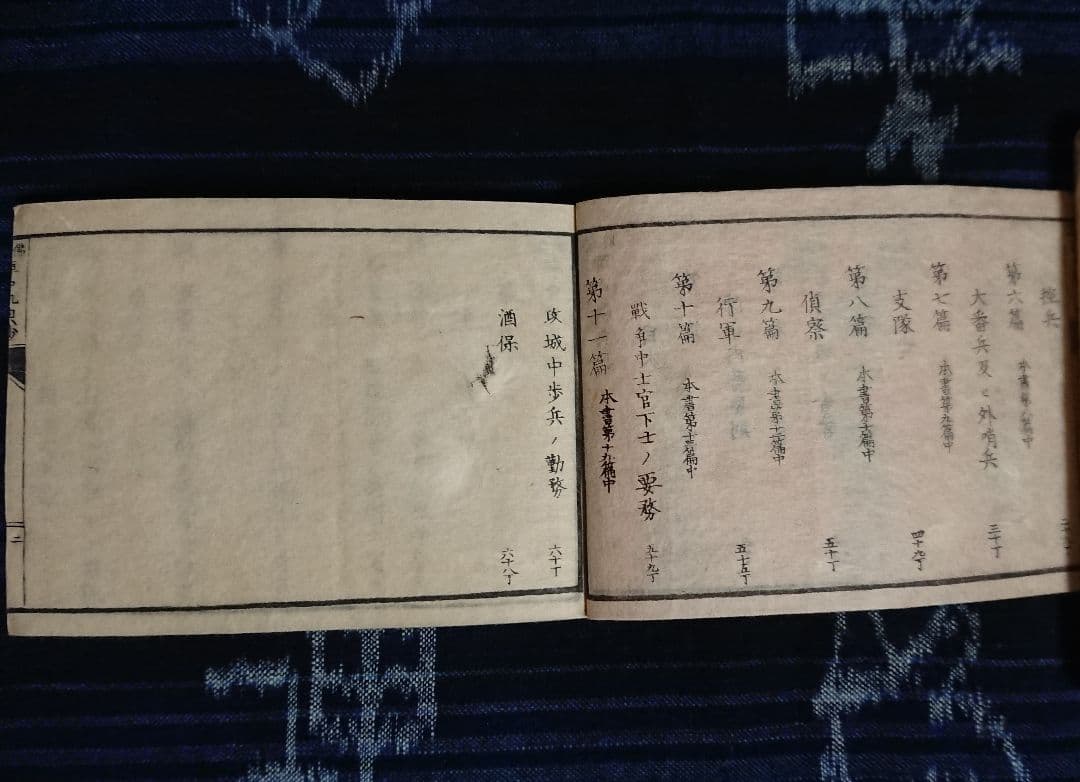 控兵
第六篇
大番兵及ヒ外哨兵 三十丁
第七篇 本書第九篇中
支隊 四十九丁
第八篇 本書第十篇中
偵察 五十丁
第九篇 本書第十二篇中
行軍 五十五丁
第十篇
戦争中士官下士ノ要務 五十九丁
第十一篇 本書第十九篇中
攻城中歩兵ノ勤務 六十丁
酒保 六十八丁
二